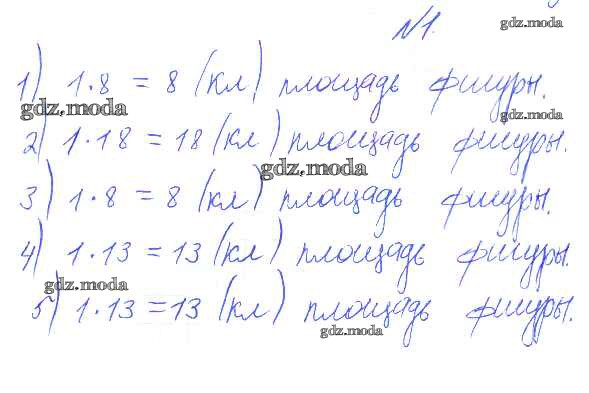 №1. gdz.moda
1) 1·8 = 8 (кл) площадь фигуры.
gdz.moda gdz.moda
2) 1·18 = 18 (кл) площадь фигуры.
gdz.moda
3) 1·8 = 8 (кл) площадь фигуры.
4) 1·13 = 13 (кл) площадь фигуры.
gdz.moda
5) 1·13 = 13 (кл) площадь фигуры.
gdz.moda